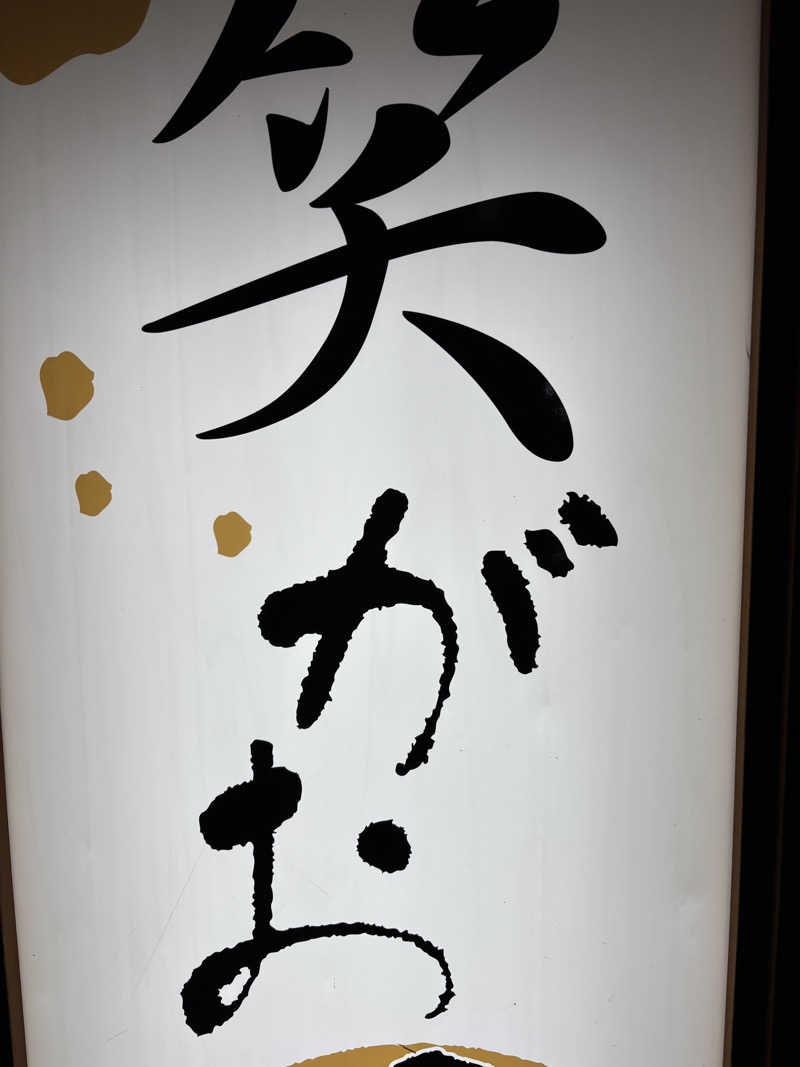 笑がお